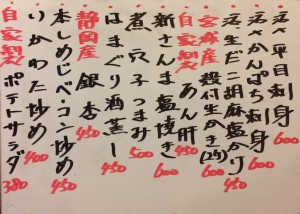 活〆平目刺身 600
活〆かんぱち刺身 600
活・生だこ胡麻塩かり 450
宮城産 殻付生かき(2ヶ) 600
自家製 あん肝 450
新さんま塩焼き 600
煮穴子つまみ 500
はまぐり酒蒸し 450
静岡産 銀杏 450
本しめじベーコン炒め 450
いかわた炒め 400
自家製 ポテトサラダ 380